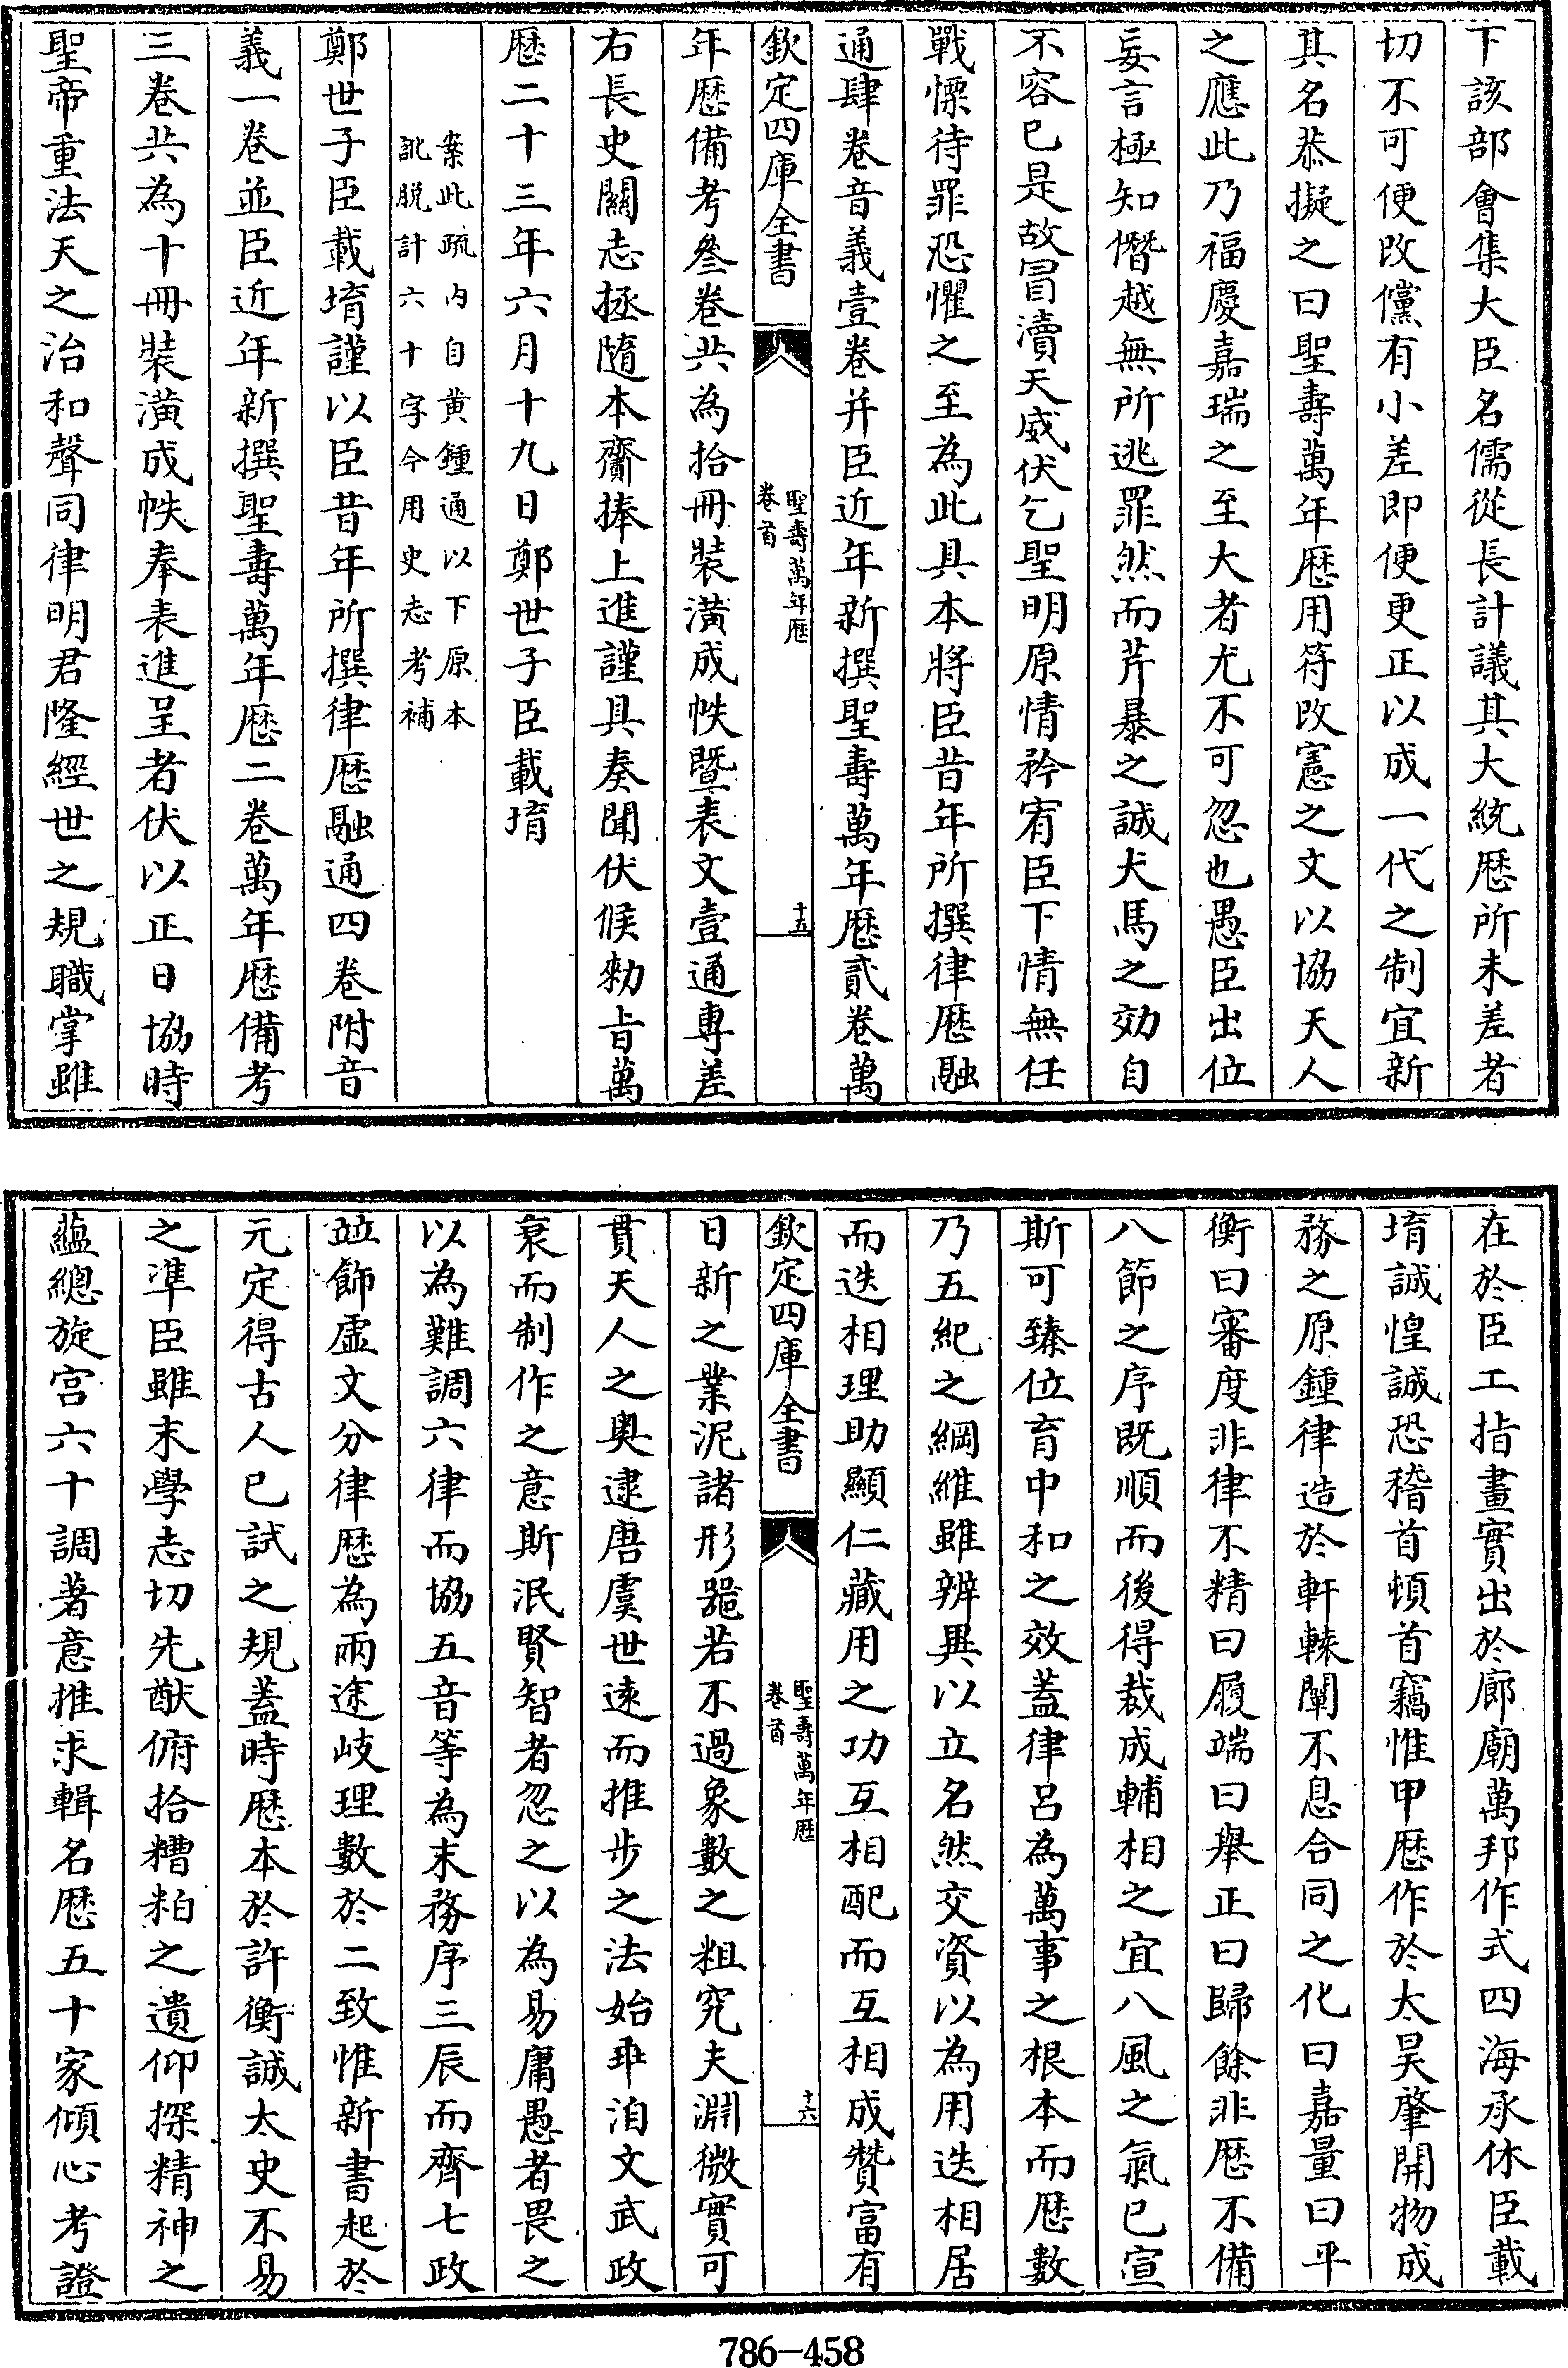 下該部會集大臣名儒從長計議其大統厯所未差者
切不可便改儻有小差即便更正以成一代之制宜新
其名恭擬之曰聖壽萬年厯用符改憲之文以協天人
之應此乃福慶嘉瑞之至大者尤不可忽也愚臣出位
妄言極知僭越無所逃罪然而芹暴之誠犬馬之効自
不容已是故冒瀆天威伏乞聖明原情矜宥臣下情無任
戰慄待罪恐懼之至為此具本將臣昔年所撰律厯融
通肆卷音義壹卷并臣近年新撰聖壽萬年厯貳卷萬
欽定四庫全書
聖壽萬年厯
卷首
十五
年厯備考叄卷共為拾冊裝潢成帙暨表文壹通專差
右長史關志拯隨本齎捧上進謹具奏聞伏候勑旨萬
厯二十三年六月十九日鄭世子臣載堉
案此疏內自黄鍾通以下原本
訛脱計六十字今用史志考補
鄭世子臣載堉謹以臣昔年所撰律厯融通四卷附音
義一卷並臣近年新撰聖壽萬年厯二卷萬年厯備考
三卷共為十冊裝潢成帙奉表進呈者伏以正日協時
聖帝重法天之治和聲同律明君隆經世之規職掌雖
在於臣工指畫實出於廊廟萬邦作式四海承休臣載
堉誠惶誠恐稽首頓首竊惟甲厯作於太昊肇開物成
務之原鍾律造於軒轅闡不息合同之化曰嘉量曰平
衡曰審度非律不精曰履端曰舉正曰歸餘非厯不備
八節之序既順而後得裁成輔相之宜八風之氣已宣
斯可臻位育中和之效蓋律呂為萬事之根本而厯數
乃五紀之綱維雖辨異以立名然交資以為用迭相居
而迭相理助顯仁藏用之功互相配而互相成贊富有
欽定四庫全書
聖壽萬年厯
卷首
十六
日新之業泥諸形噐若不過象數之粗究夫淵微實可
貫天人之奥逮唐虞世逺而推步之法始乖洎文武政
衰而制作之意斯泯賢智者忽之以為易庸愚者畏之
以為難調六律而協五音等為末務序三辰而齊七政
竝飾虛文分律厯為兩途岐理數於二致惟新書起於
元定得古人已試之規蓋時厯本於許衡誠太史不易
之凖臣雖末學志切先猷俯拾糟粕之遺仰探精神之
蘊總旋宫六十調著意推求輯名厯五十家傾心考證
786-458